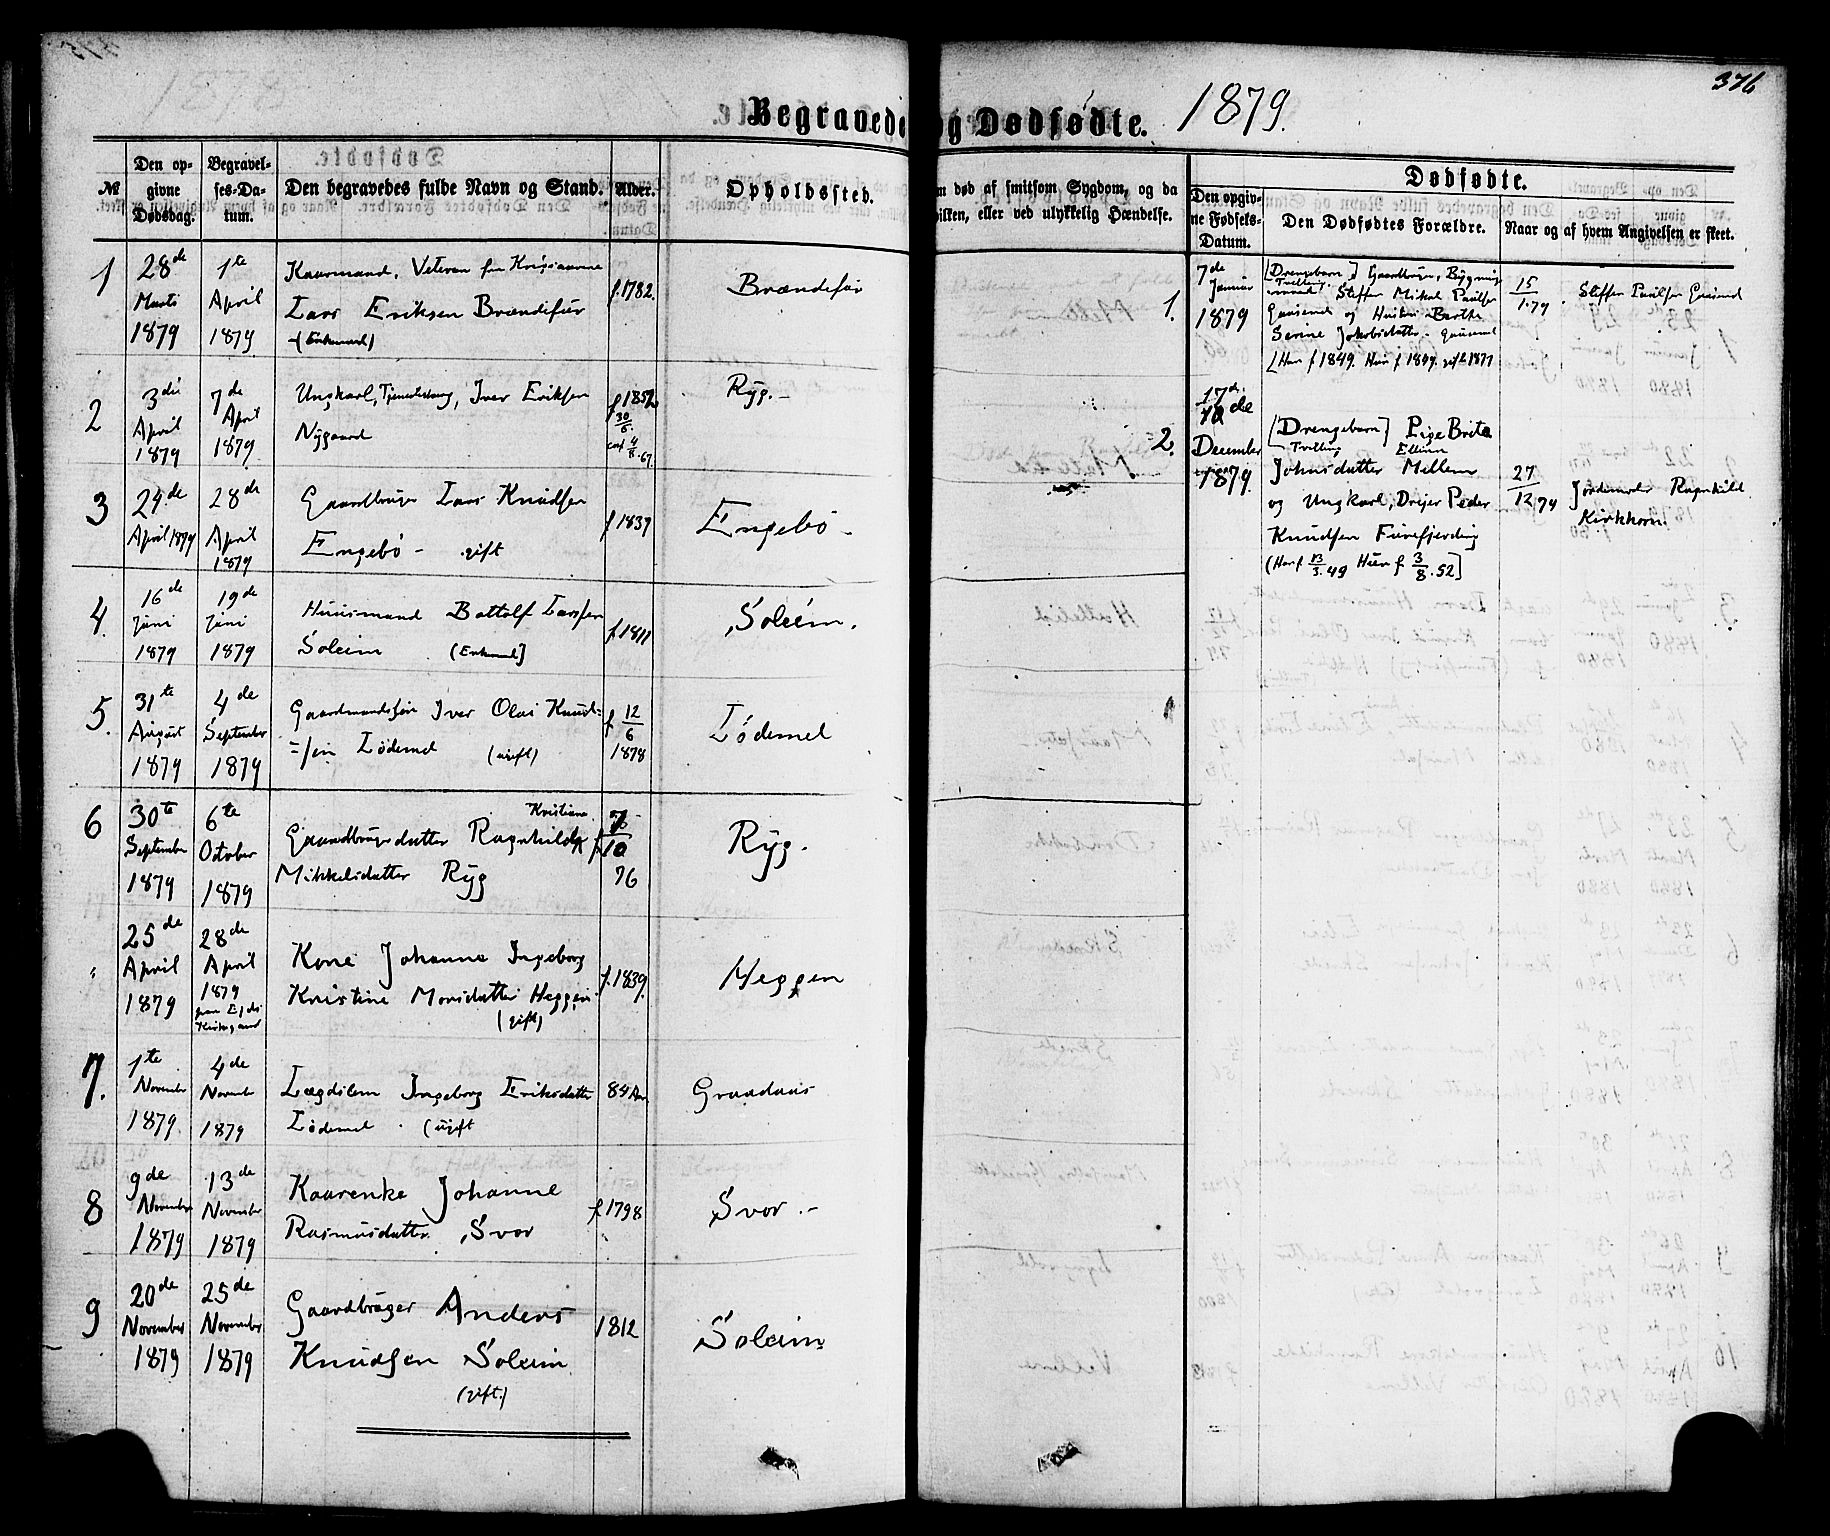 376
Begravede og Dødfødte. 1879.
№
Den op-
givne
Dødsdag.
Begravel-
ses-Da-
tum.
Den begravedes fulde Navn og Stand.
Alder.
Opholdssted.
m død af smitsom Sygdom, og da
vilken, eller ved ulykkelig Hændelse.
Dødfødte.
Den opgiv-
ne Fødsels-
Datum.
Den Dødfødtes Forældre.
Naar og af hvem Angivelsen er skeet.
1
28de
Marts
1879
1te
April
1879
Kaarmand, Veteran fra
Lars Eriksen Brændefür
(Enkemand)
f. 1782.
Brændefür
2
3die
April
1879
7de
April
1879
Ungkarl, Iver Eriksen
Nygaard
f 1852
30/6
4/8.67.
Ryg.
3
24de
April 1879
28de
April
1879
Gaardbruger Lars Knudsen
Engebö - gift
f 1837
Engebö -
4.
16de
Juni
1879
19de
Juni
1879
Huusmand Bottolf Larssen
Soleim (Enkemand)
f. 1811
Soleim.
5.
31te
August
1879
4de
September
1879
Gaardmandssøn Iver Olai Knud=
=sen Lödemel (ugift)
f 12/6
1878
Lödemel
6
30te
September
1879
6te
October
1879
Kristiane
Gaardbrugerdatter Ragnhild
Mikkelsdatter Ryg
f 10
76
Ryg.
"
25de
April
1879
28de
April
1879
Kone Johanne Ingeborg
Kristine Monsdatter Heggen
(gift)
f. 1839.
Heggen
7.
1te
November
1879.
4de
November
1879
Lægdslem Ingeborg Eriksdatter
Lödemel (ugift
84 Aar
Graadaus
8
9de
November
1879
13de
November
1879
Kaarenke Johanne
Rasmusdatter Svor
f 1798
Svor.-
9
20de
November
1879
25de
November
1879
Gaardbruger Anders
Knudsen Soleim
(gift.)
1812
Soleim
1.
7de
Januar
1879
[Drengebarn] Gaardbruger, Bygnings
Tvilling
mand Steffen Mikal Paulsen
Gausend og Hustru Berthe
Serine Jakobsdatter Gausend
[Han f 1849. Hun f 1849. gift 1877
15/1.79
Steffen Paulsen Gausend
2.
17de
December
1879.
[Drengebarn] Pige Brite
Tvilling Elline
Johnsdatter Mellem
og Ungkarl, Drejer Peder
Knudsen Furefjerding
(Han f 13/3.49 Hun f 3/8.52]
27/12.79
Jordemoder Ragnhild
Kirkhorn.